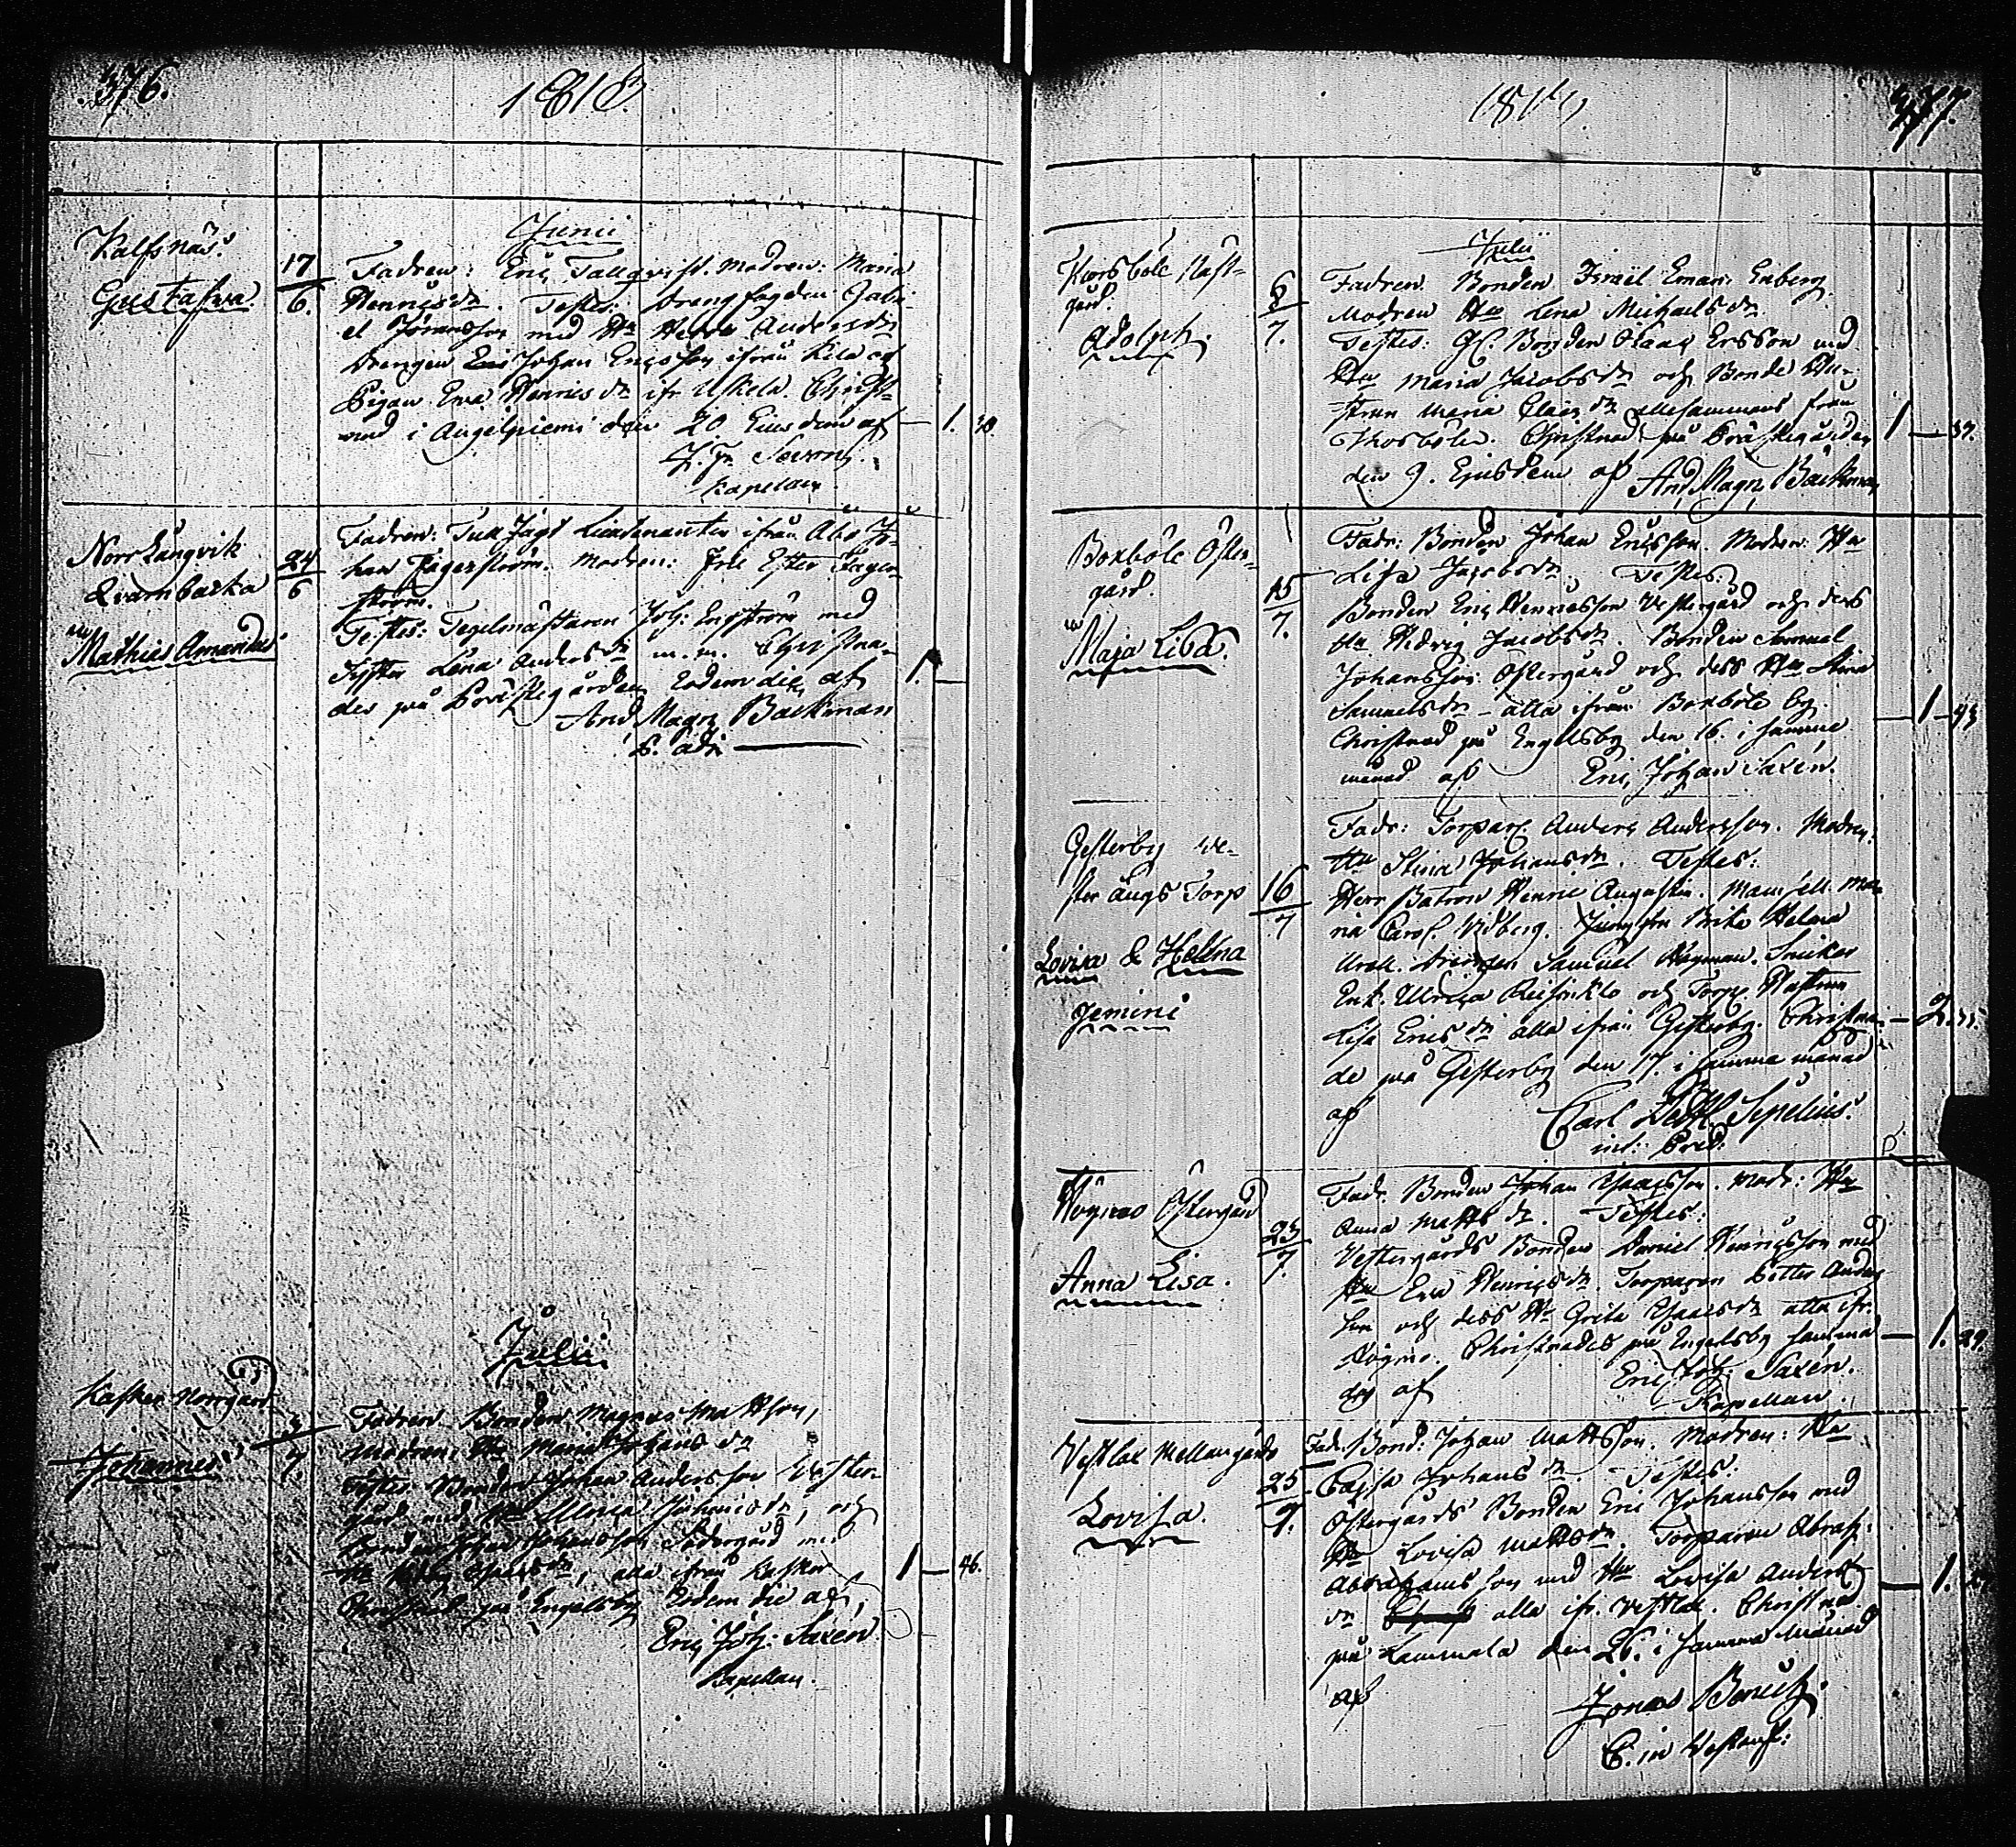 376.
1818.
Junii
Kalfsnäs.
Gustafva.
17
6.
Fadren: Eric Tallqvist. Modren: Maria
Henricsdr. Testes: Drengfogden Gabri-
el Jöransson med Hu Andersdr
Drengen Johan Ericsson ifrån Kila och
Pigan Eva Henricsdr ifr. Christ-
nad i Angelniemi den 20 Ejusdem af
Kapellan.
1. 30.
Norr Långvik
Qvarnbacka
Mathias Amandus
24
6
Fadren: Tull Jagt Lieutenanten ifrån Åbo Jo-
han Fagerström. Modren: Fru Ester Fager-
ström.
Testes: Tegelmästaren Joh: Engström med
Syster Lena Andersdr m.m. Christna-
des på Prästegården Eodem die af
And. Magn. Backman
P. adj.
1.
Julii
Kasker Norrgård
Johannes.
3
7.
Fadren Bonden Magnus Mattsson,
Modren: Hu Maria Johansdr
Testes Bonden Johan Andersson Vester-
gård med Hu Maria, och
Bonden Johan Johansson Södergård med
Hu Isaacsdr, alla ifrån Kasker
Christnad på Engelsby Eodem die af,
Eric Joh: Saxén.
Kapellan.
1 46.
1818.
377.
Julii
Korsböle Näst-
gård.
Adolph.
6
7.
Fadren Bonden Israël Eman: Enberg
Modren Hu Lena Michaelsdr
Testes: Gl. Bonden Claas Ersson med
Hu Maria Jacobsdr och Bonde Hu-
strun Maria Claësdr allesammans från
Korsböle. Christnad på Prästegården
den 9. Ejusdem af And. Magn. Backman
1 37.
Boxböle Öster-
gård.
Maja Lisa.
15
7.
Fadr: Bonden Johan Ericsson. Modren: Hu
Lisa Jacobsdr. Testes:
Bonden Eric Henricsson Vestergård och dess
Hu Hedvig Jacobsdr. Bonden Samuel
Johansson Östergård och dess Hu Stina
Samuelsdr alla ifrån Boxböle by.
Christnad på Engelsby den 16. i samma
månad af Eric Johan Saxén.
1 43
Gesterby We-
ster ängs Torp
Lovisa & Helena
gemini
16
7
Fadr: Torpar. Anders Andersson. Modren:
Hu Stina Johansdr. Testes:
Herr Patron Henric Augustin. Mamsell Ma-
ria Carol. Vidberg. Jungfru Brita Helena
Drengen Samuel Hägman. Snickar
Enk. Ulrica och Torp. Hustrun
Lisa Ericsdr alla ifrån Gesterby. Christna-
de på Gesterby den 17. i samma månad
af Carl Sipelius.
2. 31.
Rögmo Östergård
Anna Lisa.
23
7.
Fadr. Bonden Johan Isaacsson. Modr: Hu
Anna Mattsdr. Testes:
Vestergårds Bonden Daniel Henricsson med
Hu Eva Henricsdr. Torparen Petter Anders-
son och dess Hu Greta Isaacsdr alla ifr.
Rögmo. Christnades på Engelsby samma
dag af Eric Joh: Saxén.
Kapellan.
1. 29.
Vestlax Mellangårds
Lovisa.
25
7.
Fadr. Bond: Johan Mattsson. Modren: Hu
Cajsa Johansdr. Testes:
Östergårds Bonden Eric Johansson med
Hu Lovisa Mattsdr. Torparen Abrah:
Abrahamsson med Hu Lovisa Anders-
dr alla ifr. Vestlax. Christnad
på Lammala den 26. i samma månad
af Jonas
1.